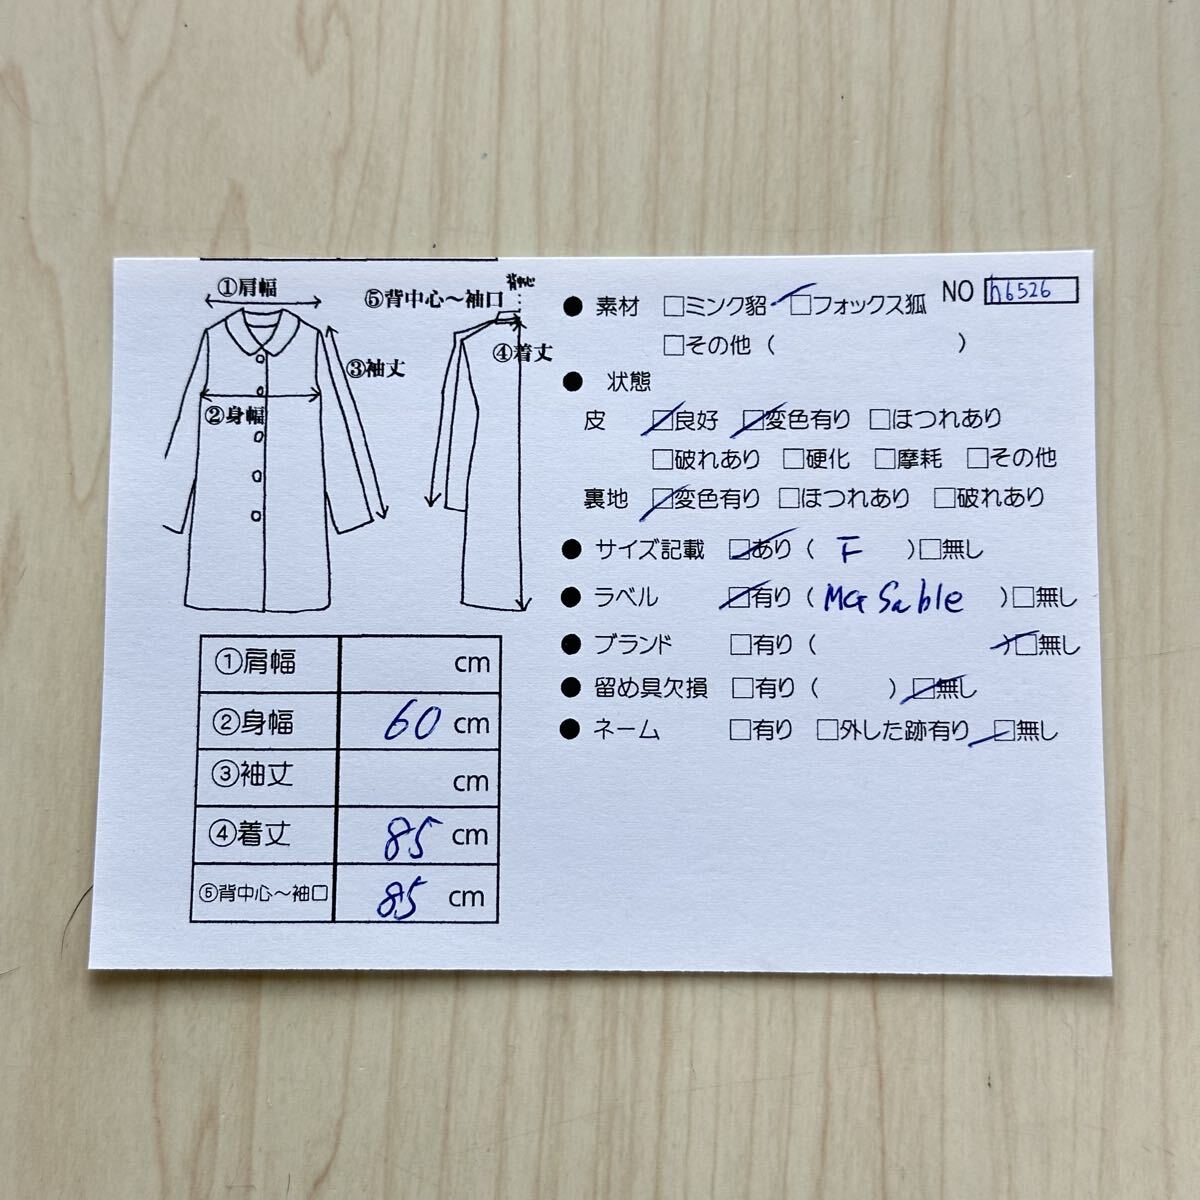 ①肩幅
⑤背中心～袖口
背中心
③袖丈
④着丈
②身幅
①肩幅 cm
②身幅 60 cm
③袖丈 cm
④着丈 85 cm
⑤背中心～袖口 85 cm
NO h6526
● 素材 □ミンク貂 □フォックス狐
□その他 ( )
● 状態
皮 □良好 □変色有り □ほつれあり
□破れあり □硬化 □摩耗 □その他
裏地 □変色有り □ほつれあり □破れあり
● サイズ記載 □あり ( F ) □無し
● ラベル □有り ( MG Sable ) □無し
● ブランド □有り ( ) □無し
● 留め具欠損 □有り ( ) □無し
● ネーム □有り □外した跡有り □無し